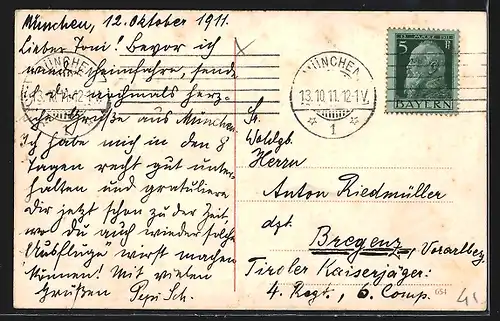 München, 12. Oktober 1911.
Lieber Toni! Bevor ich
wieder heimfahre, sende
ich dir nochmals herz-
liche Grüße aus München.
Ich habe mich in den 8
Tagen recht gut unter-
halten und gratuliere
Dir jetzt schon zu der Zeit,
wo du auch wieder solche
"Ausflüge" wirst machen
können! Mit vielen
Grüßen Pepi Sch.
MÜNCHEN
13.10.11. 12-1 V.
1
MÜNCHEN
13.10.11. 12-1 V.
1
12. MÄRZ 1911
5 Pf
BAYERN
Sr.
Wohlgb.
Herrn
Anton Riedmüller
dzt.
Bregenz, Vorarlbg.
Tiroler Kaiserjäger:
4. Regt., 6. Comp.
654
41